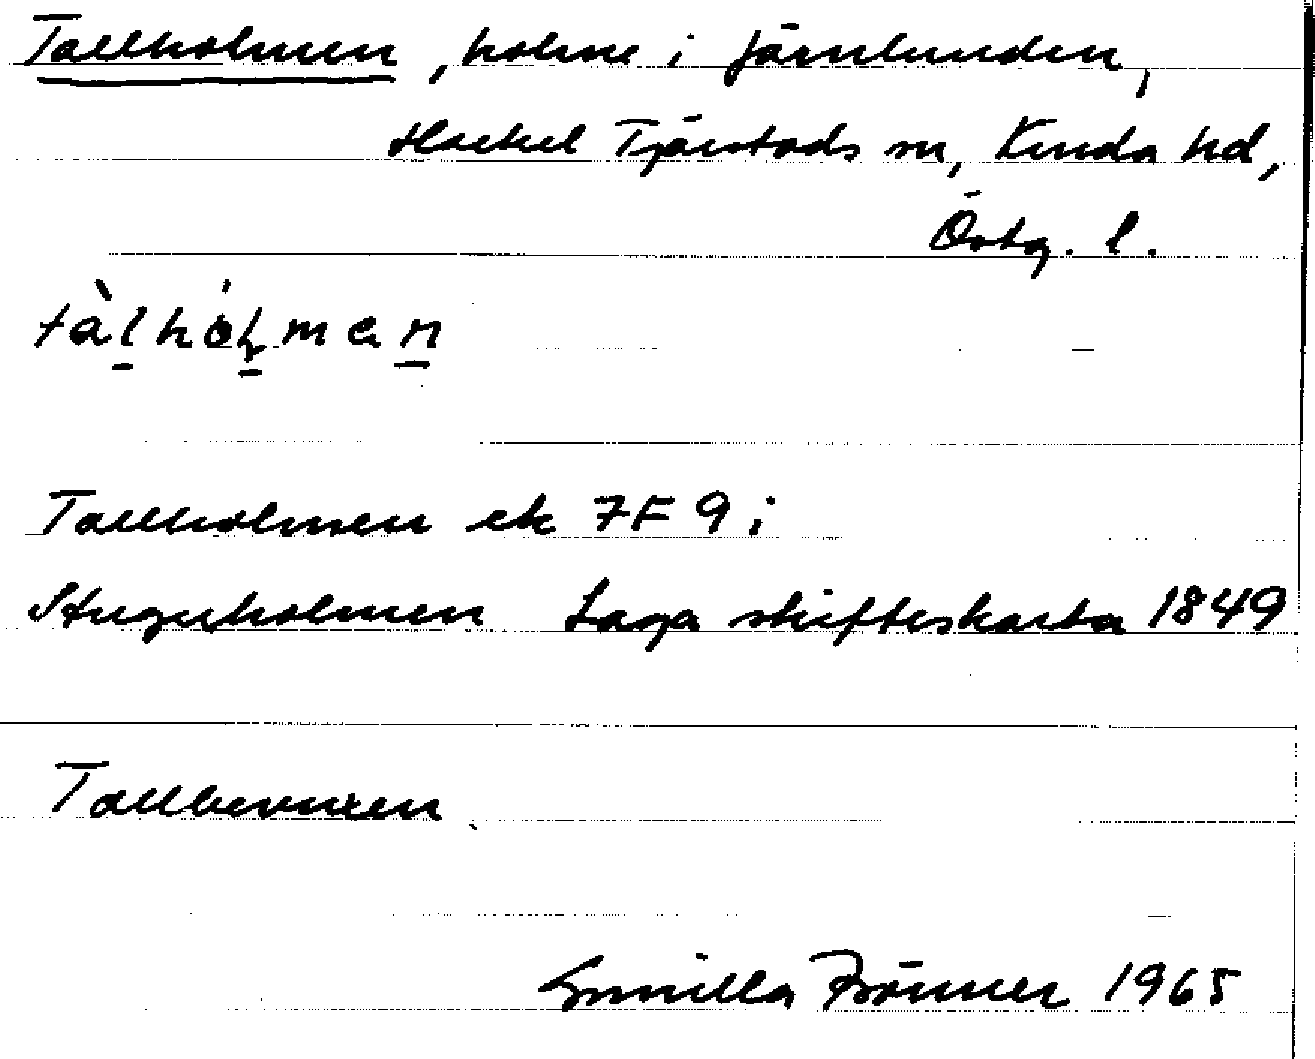 Tallholmen, holme i Järnlunden,
Hackel Tjärstads sn, Kinda hd,
Östg. l.
tàlhólmen
Tallholmen ek 7F 9 i
Stuguholmen Laga skifteskarta 1849
Tallbevuxen
Gunilla Brönner 1965